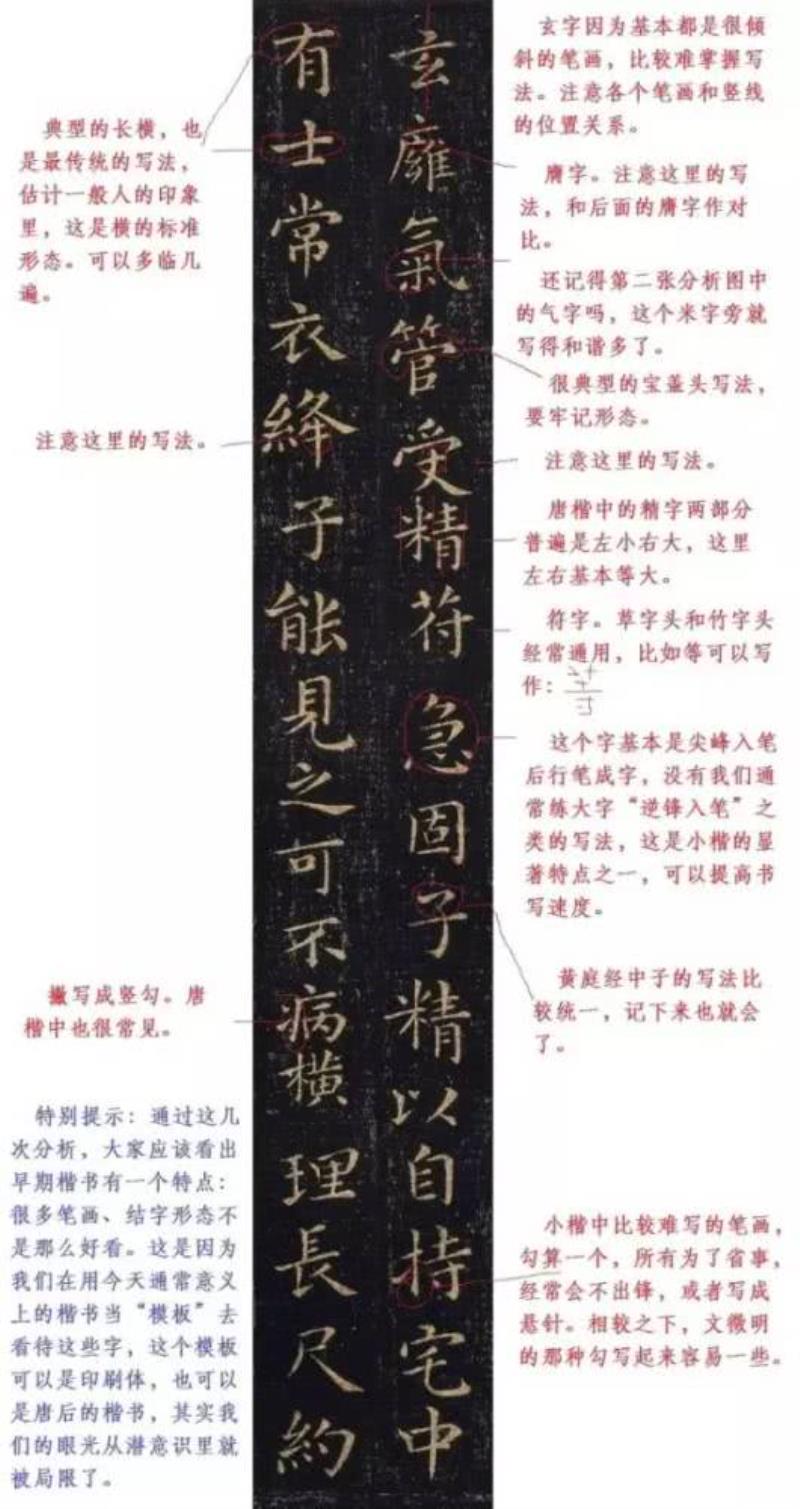 玄廱氣管受精苻急固子精以自持宅中
有士常衣絳子能見之可不病横理長尺約
玄字因为基本都是很倾
斜的笔画，比较难掌握写
法。注意各个笔画和竖线
的位置关系。
膺字。注意这里的写
法，和后面的膺字作对
比。
还记得第二张分析图中
的气字吗，这个米字旁就
写得和谐多了。
很典型的宝盖头写法，
要牢记形态。
注意这里的写法。
唐楷中的精字两部分
普遍是左小右大，这里
左右基本等大。
符字。草字头和竹字头
经常通用，比如等可以写
作：
这个字基本是尖峰入笔
后行笔成字，没有我们通
常练大字“逆锋入笔”之
类的写法，这是小楷的显
著特点之一，可以提高书
写速度。
黄庭经中子的写法比
较统一，记下来也就会
了。
小楷中比较难写的笔画，
勾算一个，所有为了省事，
经常会不出锋，或者写成
悬针。相较之下，文徵明
的那种勾写起来容易一些。
典型的长横，也
是最传统的写法，
估计一般人的印象
里，这是横的标准
形态。可以多临几
遍。
注意这里的写法。
撇写成竖勾。唐
楷中也很常见。
特别提示：通过这几
次分析，大家应该看出
早期楷书有一个特点：
很多笔画、结字形态不
是那么好看。这是因为
我们在用今天通常意义
上的楷书当“模板”去
看待这些字，这个模板
可以是印刷体，也可以
是唐后的楷书，其实我
们的眼光从潜意识里就
被局限了。